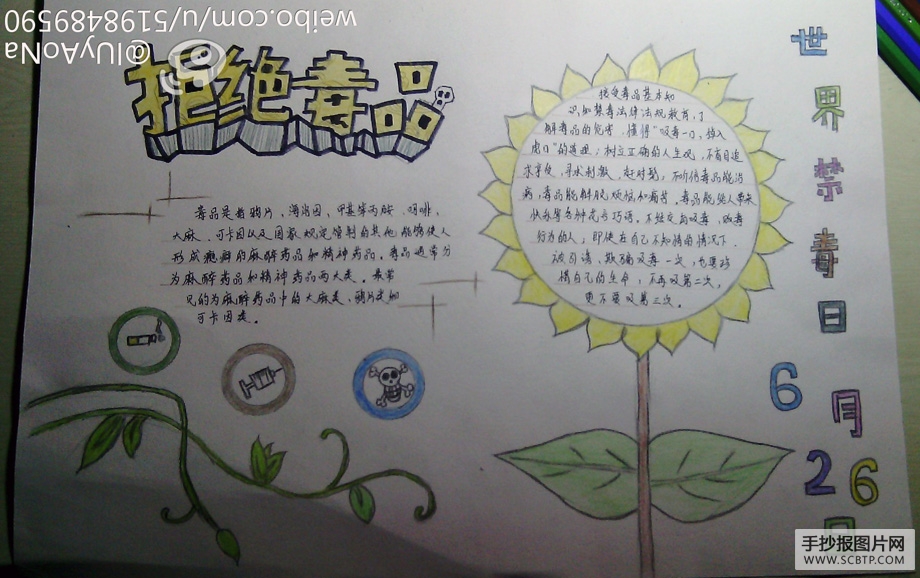 @IUyAoNa
weibo.com/u/5198489590
拒绝毒品
毒品是指鸦片、海洛因、甲基苯丙胺、吗啡、
大麻、可卡因以及国家规定管制的其他能够使人
形成瘾癖的麻醉药品和精神药品。毒品通常分
为麻醉药品和精神药品两大类。最常
见的为麻醉药品中的大麻类,鸦片类和
可卡因类。
接受毒品基本知
识和禁毒法律法规教育,了
解毒品的危害,懂得"吸毒一口,掉入
虎口"的道理;树立正确的人生观,不盲目追
求享受,寻求刺激,赶时髦;不听信毒品能治
病,毒品能解脱烦恼和痛苦,毒品能给人带来
快乐等各种花言巧语。不结交有吸毒,贩毒
行为的人;即使在自己不知情的情况下,
被引诱、欺骗吸毒一次,也要珍
惜自己的生命,不再吸第二次,
更不要吸第三次。
世界禁毒日
6月
26
日
手抄报图片网
WWW.SCBTP.COM